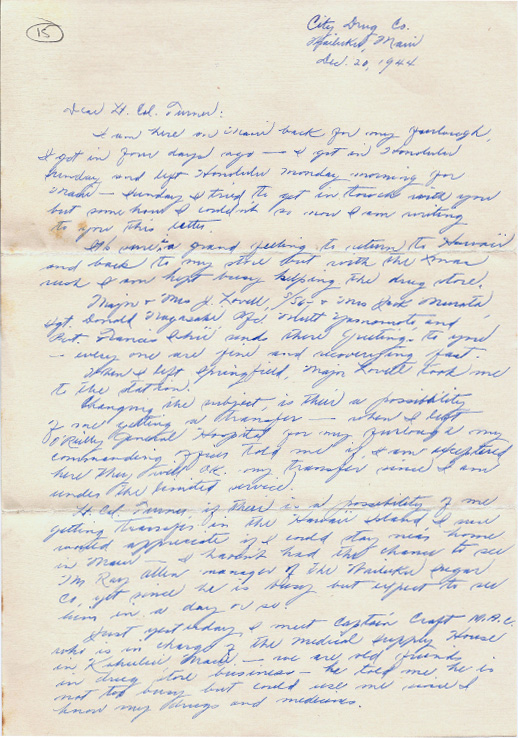 15
City Drug Co.
Wailuku, Maui
Dec. 20, 1944
Dear Lt. Col. Turner:
I am here on Maui back for my furlough,
I got in four days ago — I got in Honolulu
Sunday and left Honolulu Monday morning for
Maui — Sunday I tried to get in touch with you
but some how I couldn't so now I am writing
to you this letter.
It sure is a grand feeling to return to Hawaii
and back to my store but with the Xmas
rush I am kept busy helping the drug store.
Major & Mrs J. Lovell, S/Sgt & Mrs Jack
Sgt. Donald Nagasaki Pfc. Yamamoto and
Pvt. Francis sends there greetings to you
— every one are fine and recoverying fast.
When I left Springfield, Major Lovell took me
to the station.
Changing the subject, is their a possibility
of me getting a transfer — when I left
O'Reilly General Hospital for my furlough my
commanding officer told me if I am excepted
here they will O.K. my transfer since I am
under the limited service.
Lt. Col. Turner if their is a possibility of me
getting transfer in the Hawaii Island, I sure
appreciate if I could stay near home
in Maui — I havn't had the chance to see
Mr Ray Allen manager of the Wailuku Sugar
Co, yet since he is busy but expect to see
him in a day or so.
Just yesterday I meet Captain Craft M.A.C.
who is in charge of the medical supply House
in Kahului Maui, — we are old friends
in drug store business — he told me he is
not too busy but could use me since I
know my drugs and medicines.